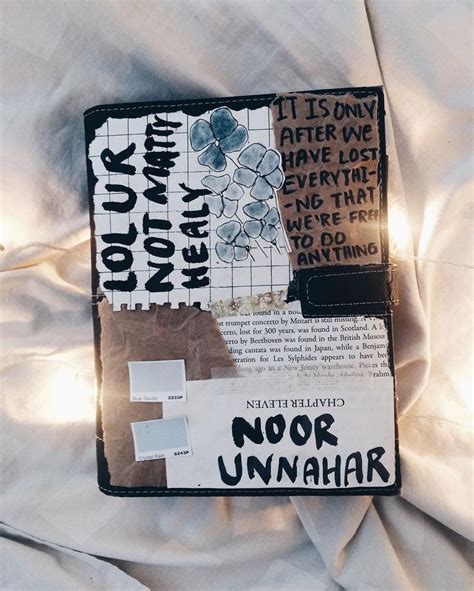 LOL UR
NOT MATTY
HEALY
IT IS ONLY
AFTER WE
HAVE LOST
EVERYTHI-
-NG THAT
WE'RE FREE
TO DO
ANYTHING
was found in a
st trumpet concerto by Mozart is still missing. A
certo, lost for 300 years, was found in Scotland. A lost
certo by Beethoven was found in the British Museum
ding cantata was found in Japan, while a Benjam
estration for Les Sylphides appears to have been
ing ago in a New Jersey warehouse. Pieces
CHAPTER ELEVEN
Blue Gensler 2233P
Crystal Rain 6243P
NOOR
UNNAHAR